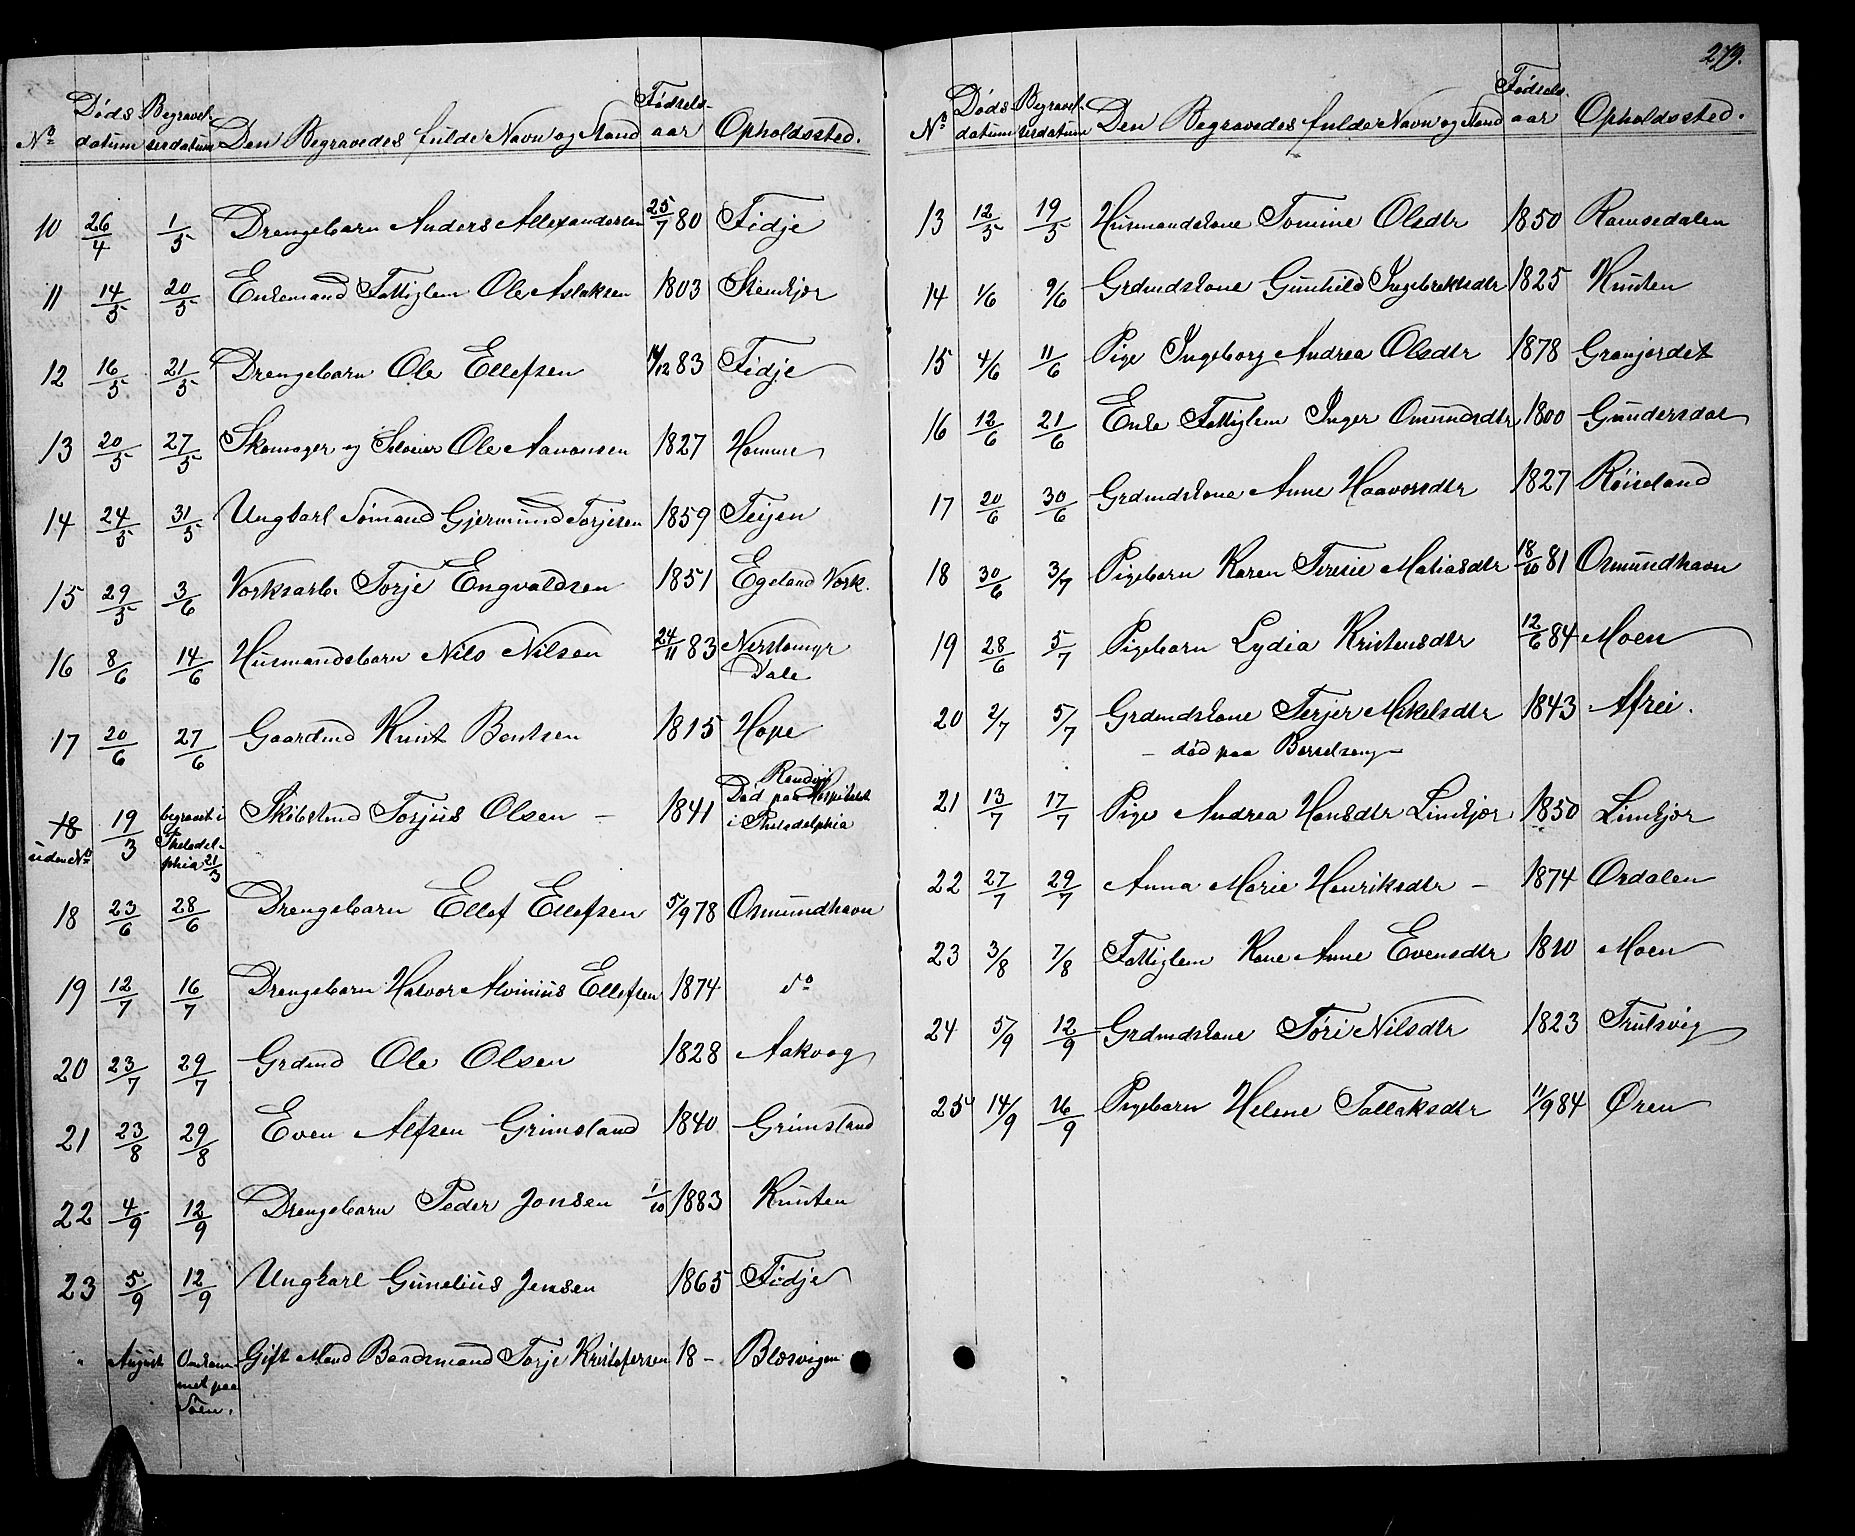 Nº Døds- datum Begravel- sesdatum Den Begravedes fulde Navn og Stand Fødsels- aar Opholdssted.
10 26/4 1/5 Drengebarn Anders Allexandersen 25/7 80 Fidje
11 14/5 20/5 Enkemand Fattiglem Ole Aslaksen 1803 Stenkjør
12 16/5 21/5 Drengebarn Ole Ellefsen 14/12 83 Fidje
13 20/5 27/5 Skomager og Ole Aavonsen 1827 Homme
14 24/5 31/5 Ungkarl Sømand Gjermund Torjesen 1859 Teijen
15 29/5 3/6 Verksarb. Torje Engvaldsen 1851 Egeland Værk.
16 8/6 14/6 Husmandsbarn Nils Nilsen 24/11 83 Nerstemyr
Dale
17 20/6 27/6 Gaardmd Knut Bentsen 1815 Hope
18 19/3 begravet i Skibstmd Torjus Olsen – 1841 Død paa Hospitalet
uden Nº Philadel- phia 21/3 i Philadelphia
18 23/6 28/6 Drengebarn Ellef Ellefsen 5/9 78 Osmundhavn
19 12/7 16/7 Drengebarn Halvor Alvinius Ellefsen 1874 dº
20 23/7 29/7 Grdmd Ole Olsen 1828 Aakvag
21 23/8 29/8 Even Alfsen Grimsland 1840 Grimsland
22 4/9 12/9 Drengebarn Peder Jonsen 1/10 1883 Knuten
23 5/9 12/9 Ungkarl Gunelius Jensen 1865 Fidje
" August Omkom- Gift Mand Baadsmand Torje Kristofersen 18 – Blosvigen
met paa
Søen.
279.
Nº Døds- datum Begravel- sesdatum Den Begravedes fulde Navn og Stand Fødsels- aar Opholdssted.
13 12/5 19/5 Husmandskone Tomine Olsdtr 1850 Ramsedalen
14 1/6 9/6 Grdmdskone Gunhild Ingebrektsdtr 1825 Knuten
15 4/6 11/6 Pige Ingeborg Andrea Olsdtr 1878 Granjordet
16 12/6 21/6 Enke Fattiglem Inger Omundsdtr 1800 Gundersdal
17 20/6 30/6 Grdmdskone Anne Haavorsdtr 1827 Røiseland
18 30/6 3/7 Pigebarn Karen Terese Matiasdtr 18/10 81 Osmundhavn
19 28/6 5/7 Pigebarn Lydia Kristensdtr 12/6 84 Moen
20 2/7 5/7 Grdmdskone Terjer Mikelsdtr 1843 Afrei.
– død paa Berselseng –
21 13/7 17/7 Pige Andrea Hansdtr Limkjær 1850 Limkjær
22 27/7 29/7 Anna Marie Henriksdtr – 1874 Ordalen
23 3/8 7/8 Fattiglem Kone Anne Evensdtr 1810 Moen
24 5/9 12/9 Grdmdskone Tøri Nilsdtr 1823 Trulsvig
25 14/9 16/9 Pigebarn Helene Tallaksdtr 11/9 84 Øren